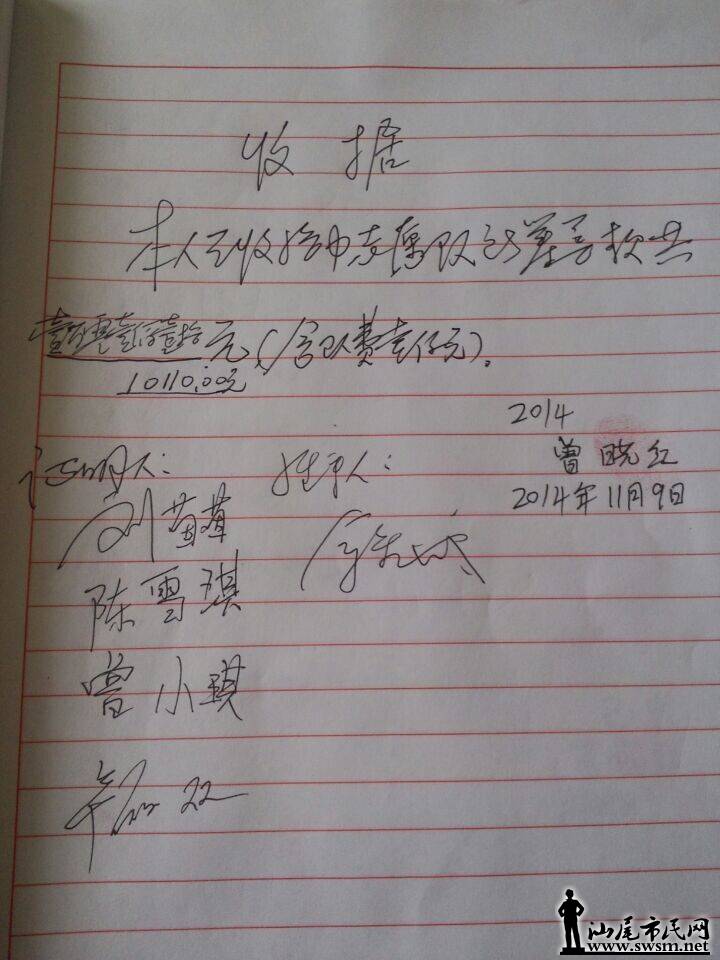 收据
本人已收给中志愿队的善款共
壹万零壹佰壹拾元(含队费壹仟元)。
10110.00元
2014
曾晓红
2014年11月9日
证明人: 经手人:
刘苗苗
陈雪琪
曾小琪
汕尾市民网
www.swsm.net